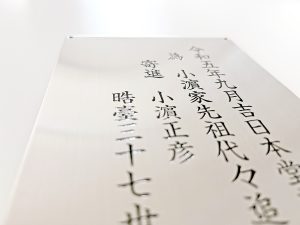 令和五年九月吉日本堂
為 小濵家先祖代々追
寄進 小濵正彦
晧臺三十七世